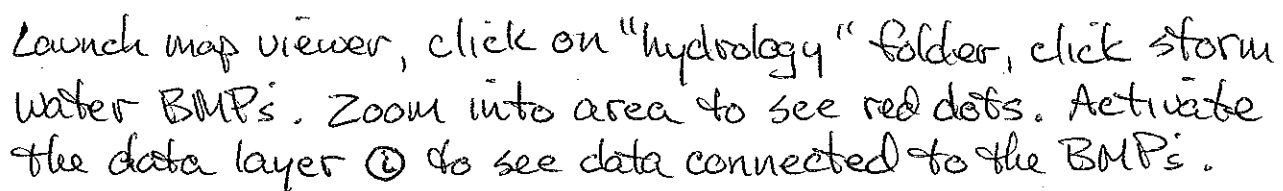 Launch map viewer, click on "hydrology" folder, click storm
water BMPs. Zoom into area to see red dots. Activate
the data layer ⓘ to see data connected to the BMPs.